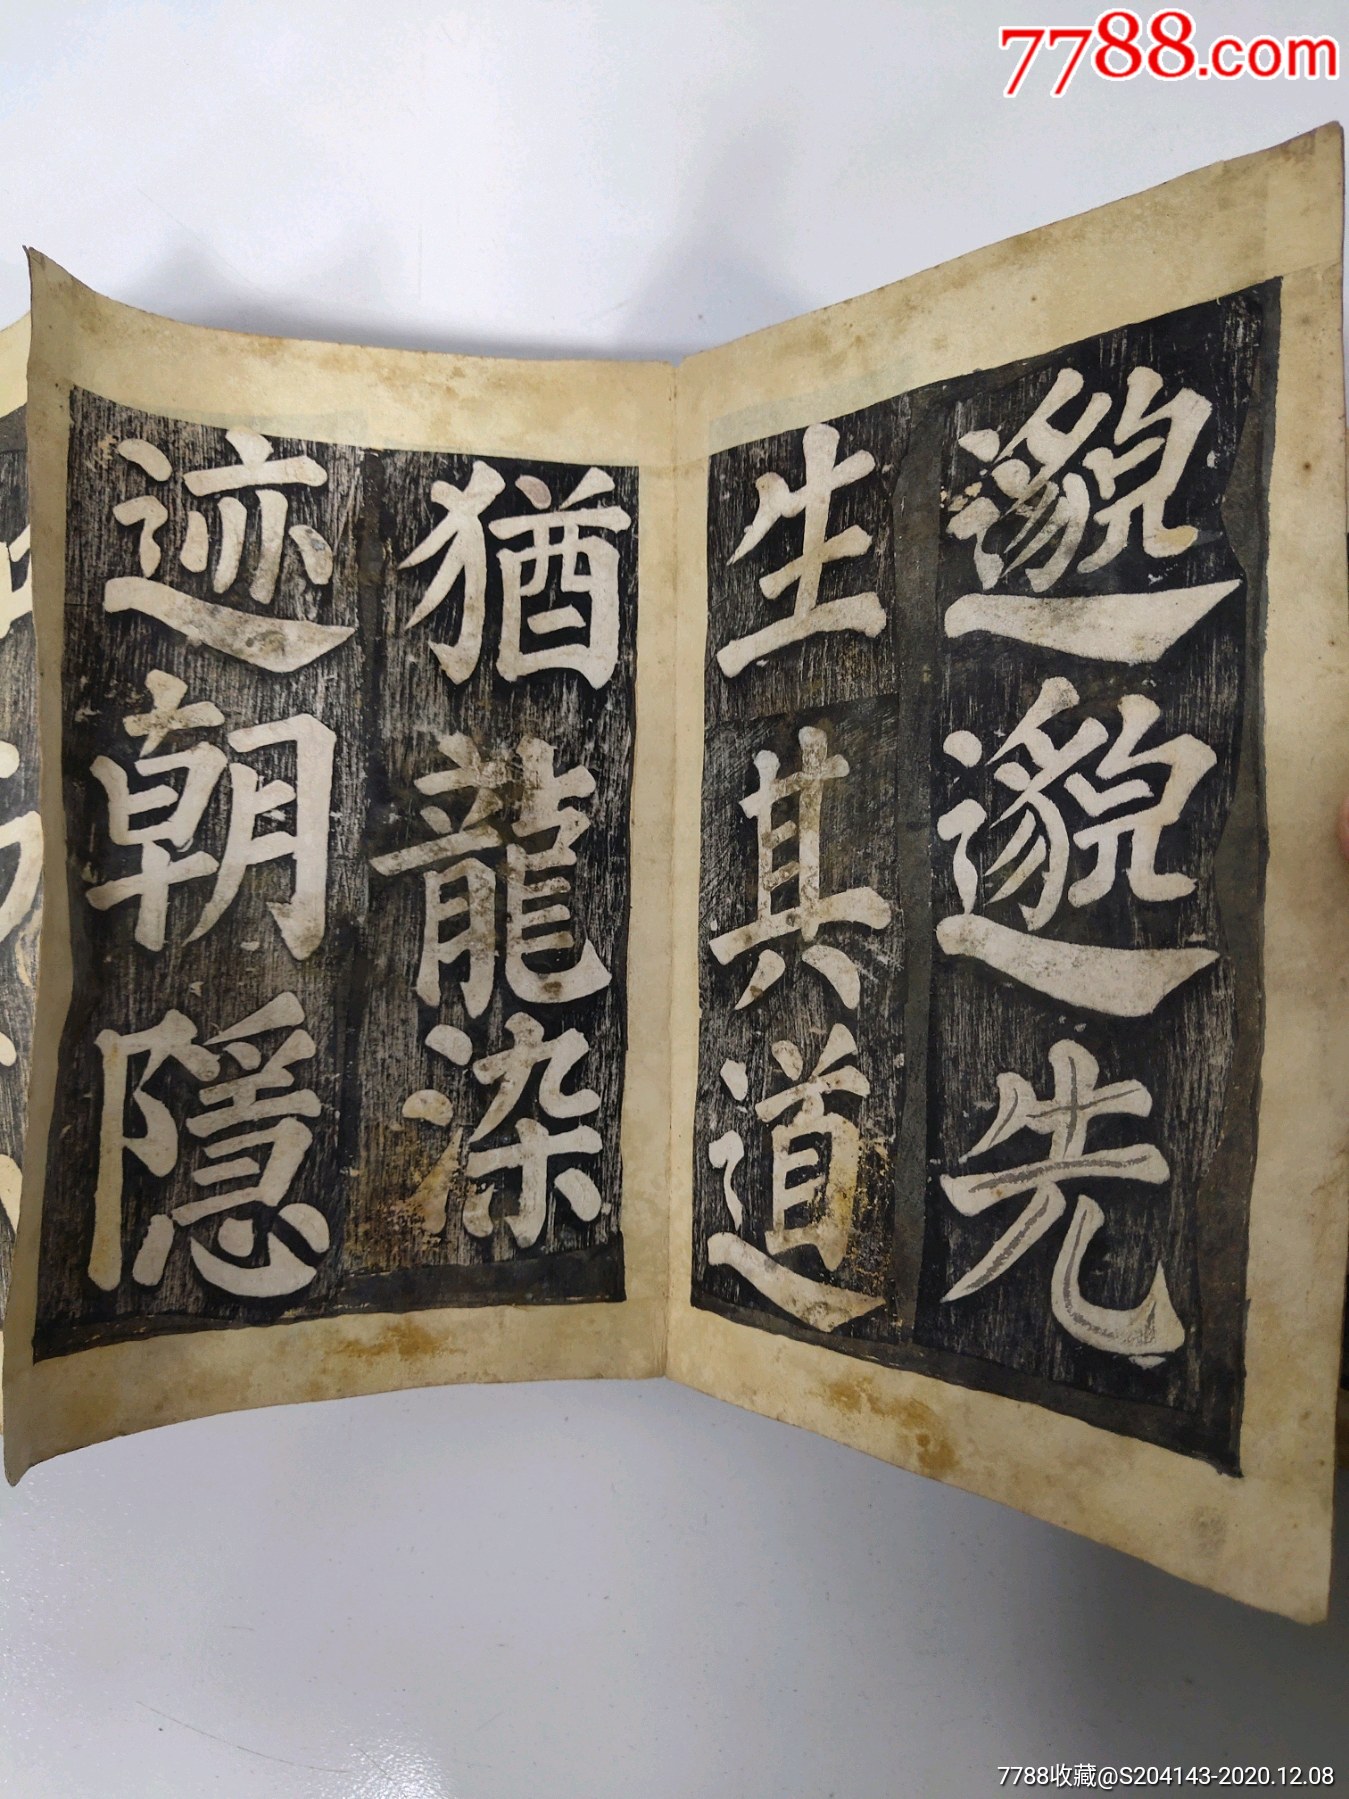 7788.com
邈邈先
生其道
猶龍染
迹朝隱
7788收藏@S204143-2020.12.08